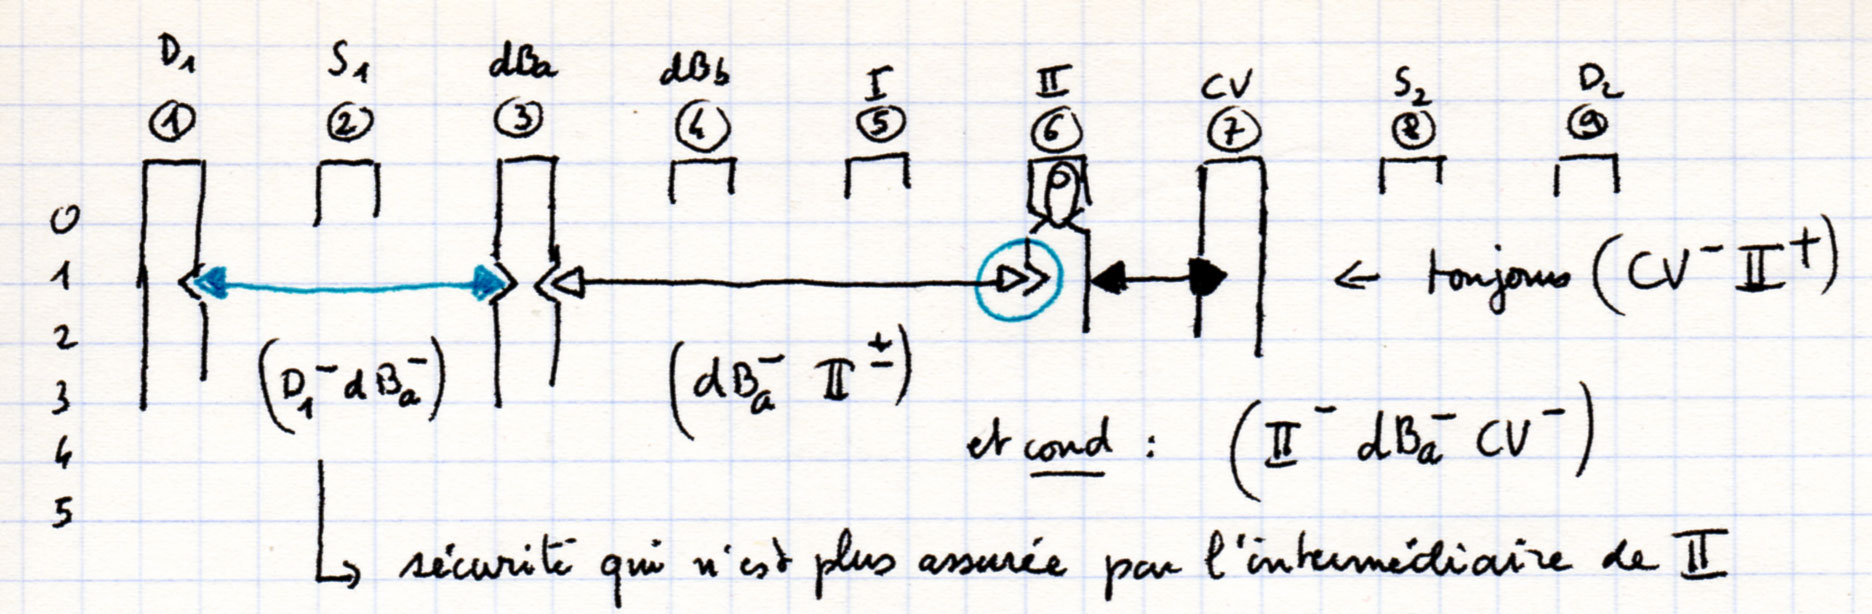 D1 S1 dBa dBb I II CV S2 D2
1 2 3 4 5 6 7 8 9
0
1 ← toujours (CV⁻ II⁺)
2
3 (D1⁻ dBa⁻) (dBa⁻ II±)
4 et cond : (II⁻ dBa⁻ CV⁻)
5
sécurité qui n'est plus assurée par l'intermédiaire de II